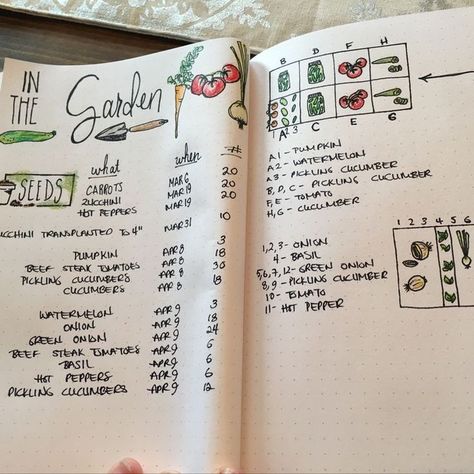 IN THE Garden
what when #
SEEDS
CARROTS MAR 6 20
ZUCCHINI MAR 19 20
HOT PEPPERS MAR 19 20
ZUCCHINI TRANSPLANTED TO 4" MAR 31 10
PUMPKIN APR 8 3
BEEF STEAK TOMATOES APR 8 18
PICKLING CUCUMBERS APR 8 36
CUCUMBERS APR 8 18
WATERMELON APR 9 3
ONION APR 9 18
GREEN ONION APR 9 24
BEEF STEAK TOMATOES APR 9 6
BASIL APR 9 6
HOT PEPPERS APR 9 6
PICKLING CUCUMBERS APR 9 12
B D F H
1 2 3
A C E G
A1 - PUMPKIN
A2 - WATERMELON
A3 - PICKLING CUCUMBER
B, D, C - PICKLING CUCUMBER
F, E - TOMATO
H, G - CUCUMBER
1 2 3 4 5 6
1, 2, 3 - ONION
4 - BASIL
5, 6, 7, 12 - GREEN ONION
8, 9 - PICKLING CUCUMBER
10 - TOMATO
11 - HOT PEPPER